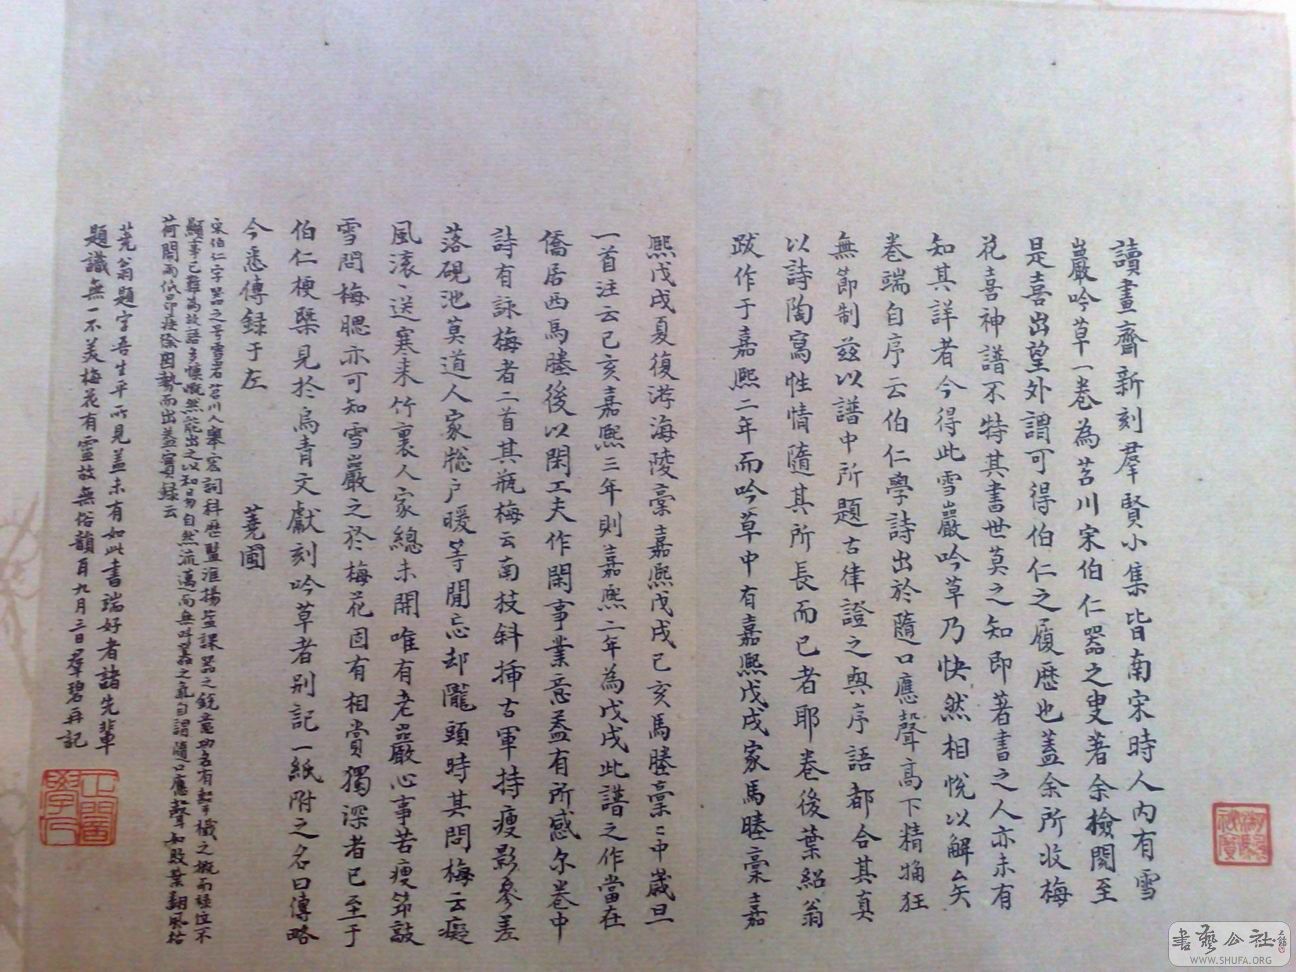 讀畫齋新刻羣賢小集皆南宋時人內有雪
巖吟草一卷為苕川宋伯仁器之叟著余檢閱至
是喜出望外謂可得伯仁之履歷也蓋余所收梅
花喜神譜不特其書世莫之知即著書之人亦未有
知其詳者今得此雪巖吟草乃快然相悅以解矣
卷端自序云伯仁學詩出於隨口應聲高下精觕狂
無節制茲以譜中所題古律證之與序語都合其真
以詩陶寫性情隨其所長而已者耶卷後葉紹翁
跋作于嘉熙二年而吟草中有嘉熙戊戌家馬塍稾嘉
熙戊戌夏復游海陵稾嘉熙戊戌己亥馬塍稾稾中歲旦
一首注云己亥嘉熙三年則嘉熙二年為戊戌此譜之作當在
僑居西馬塍後以閑工夫作閑事業意蓋有所感尔卷中
詩有詠梅者二首其瓶梅云南枝斜揷古軍持瘦影參差
落硯池莫道人家牕戶暖等閒忘却隴頭時其問梅云癡
風滾〻送寒来竹裏人家總未開唯有老巖心事苦瘦筇敲
雪問梅腮亦可知雪巖之於梅花固有相賞獨深者已至于
伯仁梗槩見於烏青文獻刻吟草者别記一紙附之名曰傳略
今悉傳録于左 蕘圃
宋伯仁字器之号雪岩苕川人舉宏詞科歷監淮揚鹽課器之銳意功名有擊楫之概而
顯事已難為故語多慷慨然能出之以和易自然流邁而無叫嚣之气自謂隨口應聲如敗葉翻風枯
荷閙雨低昂疾徐因勢而出蓋實録云
蕘翁題字吾生平所見蓋未有如此書端好者諸先輩
題識無一不美梅花有靈故無俗韻耳九月三日羣碧再記
書藝公社
WWW.SHUFA.ORG